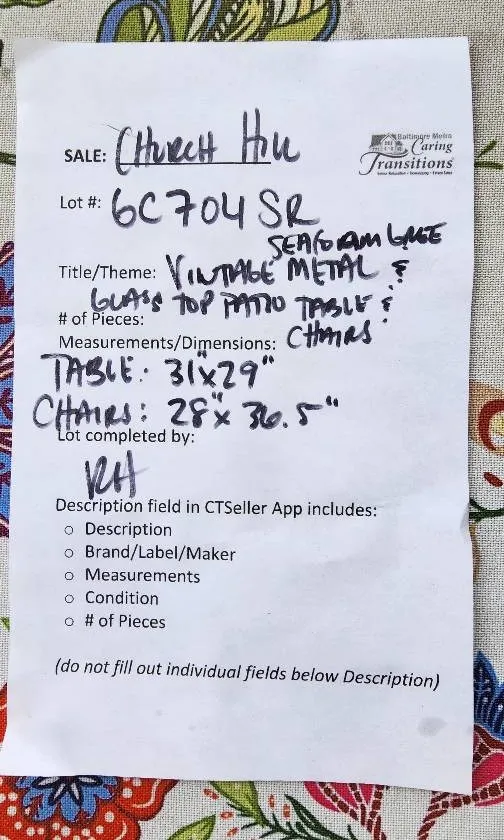 Baltimore Metro
Caring
Transitions
SALE: CHURCH Hill
Lot #: 6C704SR
SEAFOAM GREE
Title/Theme: VINTAGE METAL &
GLASS TOP PATIO TABLE &
# of Pieces:
Measurements/Dimensions: CHAIRS
TABLE: 31"x29"
CHAIRS: 28"x 36.5"
Lot completed by:
RH
Description field in CTSeller App includes:
o Description
o Brand/Label/Maker
o Measurements
o Condition
o # of Pieces
(do not fill out individual fields below Description)